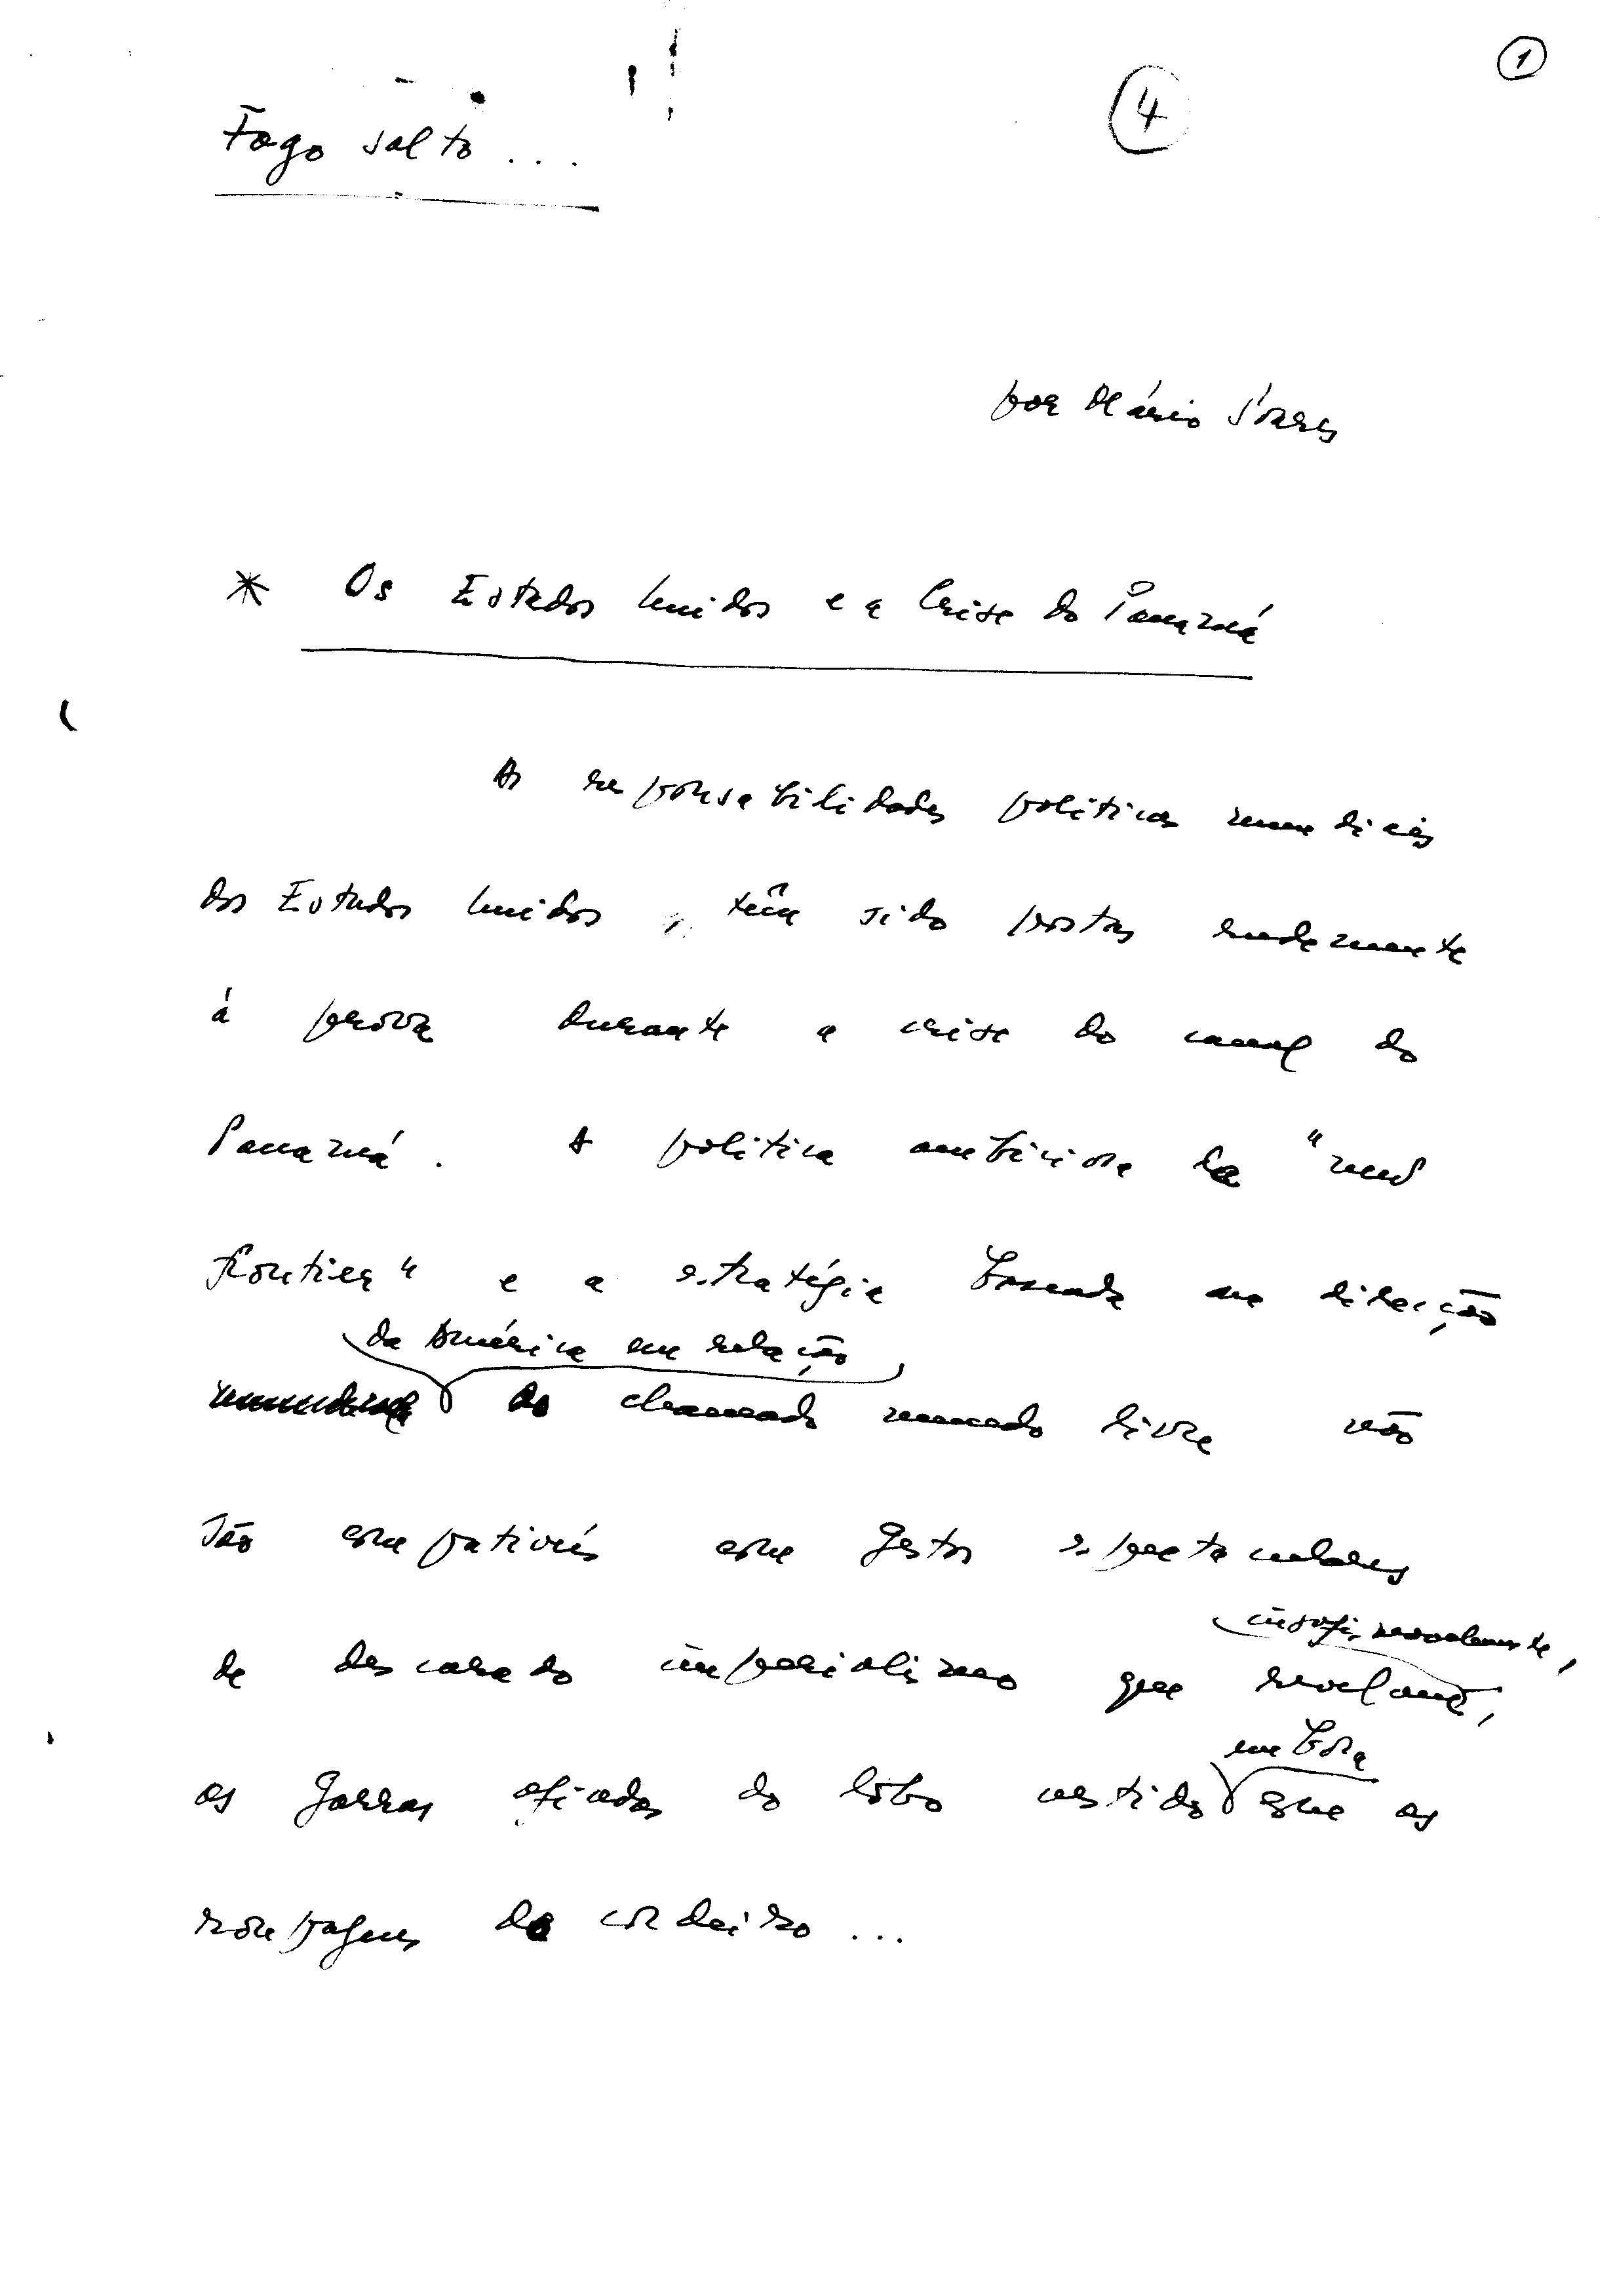 1
4
Fogo solto...
por Mário Soares
* Os Estados Unidos e a Crise do Panamá
As responsabilidades políticas mundiais
dos Estados Unidos têm sido postas rudemente
à prova durante a crise do canal do
Panamá. A política ambiciosa da "new
frontier" e a estratégia baseada na direcção
da América em relação
do chamado mundo livre não
são compatíveis com gestos espectaculares
insofismavelmente,
de descarado imperialismo que revelam,
embora
as garras afiadas do lobo vestido com as
roupagens do cordeiro...